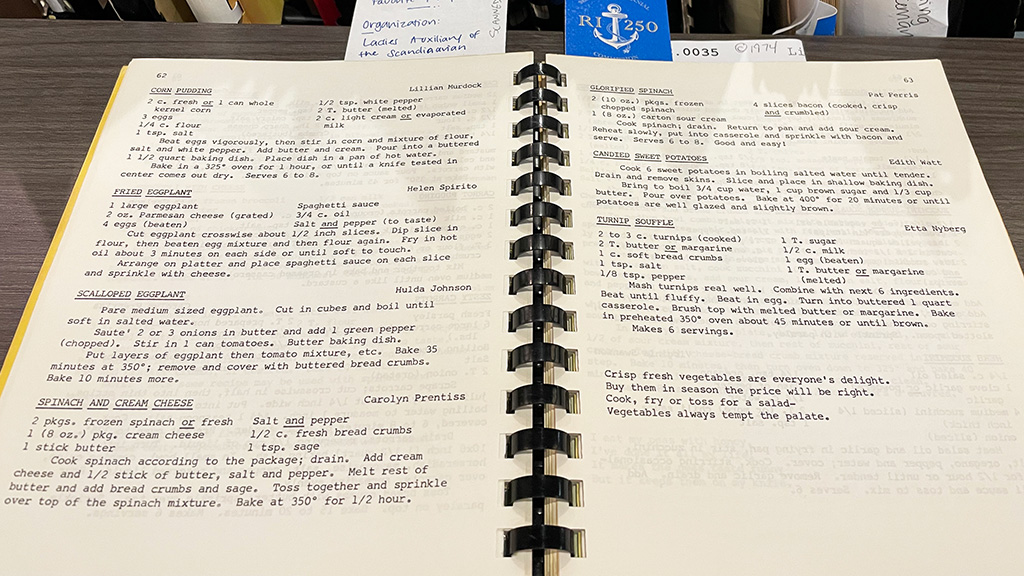 Organization:
Ladies Auxiliary of
the Scandinavian
SCANNED
RI 250
.0035 ©1974 Li
62
CORN PUDDING
Lillian Murdock
2 c. fresh or 1 can whole
kernel corn
3 eggs
1/4 c. flour
1 tsp. salt
1/2 tsp. white pepper
2 T. butter (melted)
2 c. light cream or evaporated
milk
Beat eggs vigorously, then stir in corn and mixture of flour,
salt and white pepper. Add butter and cream. Pour into a buttered
1 1/2 quart baking dish. Place dish in a pan of hot water.
Bake in a 325° oven for 1 hour, or until a knife tested in
center comes out dry. Serves 6 to 8.
FRIED EGGPLANT
Helen Spirito
1 large eggplant
2 oz. Parmesan cheese (grated)
4 eggs (beaten)
Spaghetti sauce
3/4 c. oil
Salt and pepper (to taste)
Cut eggplant crosswise about 1/2 inch slices. Dip slice in
flour, then beaten egg mixture and then flour again. Fry in hot
oil about 3 minutes on each side or until soft to touch.
Arrange on platter and place spaghetti sauce on each slice
and sprinkle with cheese.
SCALLOPED EGGPLANT
Hulda Johnson
Pare medium sized eggplant. Cut in cubes and boil until
soft in salted water.
Saute' 2 or 3 onions in butter and add 1 green pepper
(chopped). Stir in 1 can tomatoes. Butter baking dish.
Put layers of eggplant then tomato mixture, etc. Bake 35
minutes at 350°; remove and cover with buttered bread crumbs.
Bake 10 minutes more.
SPINACH AND CREAM CHEESE
Carolyn Prentiss
2 pkgs. frozen spinach or fresh
1 (8 oz.) pkg. cream cheese
1 stick butter
Salt and pepper
1/2 c. fresh bread crumbs
1 tsp. sage
Cook spinach according to the package; drain. Add cream
cheese and 1/2 stick of butter, salt and pepper. Melt rest of
butter and add bread crumbs and sage. Toss together and sprinkle
over top of the spinach mixture. Bake at 350° for 1/2 hour.
63
GLORIFIED SPINACH
Pat Ferris
2 (10 oz.) pkgs. frozen
chopped spinach
1 (8 oz.) carton sour cream
4 slices bacon (cooked, crisp
and crumbled)
Cook spinach; drain. Return to pan and add sour cream.
Reheat slowly, put into casserole and sprinkle with bacon and
serve. Serves 6 to 8. Good and easy!
CANDIED SWEET POTATOES
Edith Watt
Cook 6 sweet potatoes in boiling salted water until tender.
Drain and remove skins. Slice and place in shallow baking dish.
Bring to boil 3/4 cup water, 1 cup brown sugar and 1/3 cup
butter. Pour over potatoes. Bake at 400° for 20 minutes or until
potatoes are well glazed and slightly brown.
TURNIP SOUFFLE
Etta Nyberg
2 to 3 c. turnips (cooked)
2 T. butter or margarine
1 c. soft bread crumbs
1 tsp. salt
1/8 tsp. pepper
1 T. sugar
1/2 c. milk
1 egg (beaten)
1 T. butter or margarine
(melted)
Mash turnips real well. Combine with next 6 ingredients.
Beat until fluffy. Beat in egg. Turn into buttered 1 quart
casserole. Brush top with melted butter or margarine. Bake
in preheated 350° oven about 45 minutes or until brown.
Makes 6 servings.
Crisp fresh vegetables are everyone's delight.
Buy them in season the price will be right.
Cook, fry or toss for a salad-
Vegetables always tempt the palate.